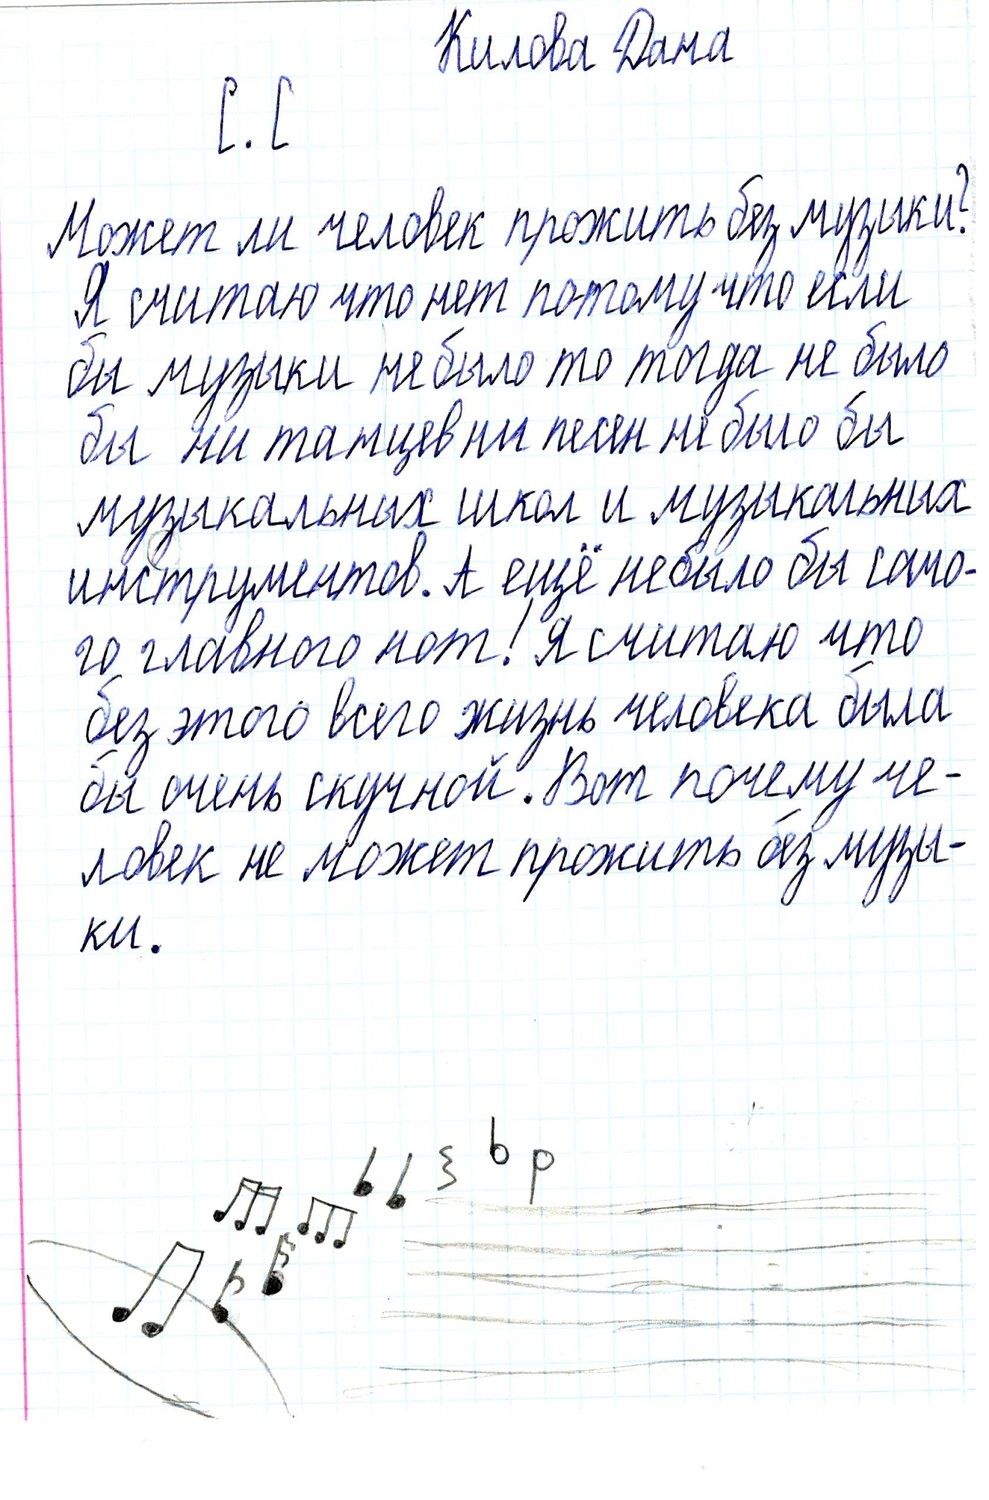 Килова Дана
С. С
Может ли человек прожить без музыки?
Я считаю что нет потому что если
бы музыки небыло то тогда не было
бы ни танцев ни песен не было бы
музыкальных школ и музыкальных
инструментов. А ещё небыло бы само-
го главного нот! Я считаю что
без этого всего жизнь человека была
бы очень скучной. Вот почему че-
ловек не может прожить без музы-
ки.